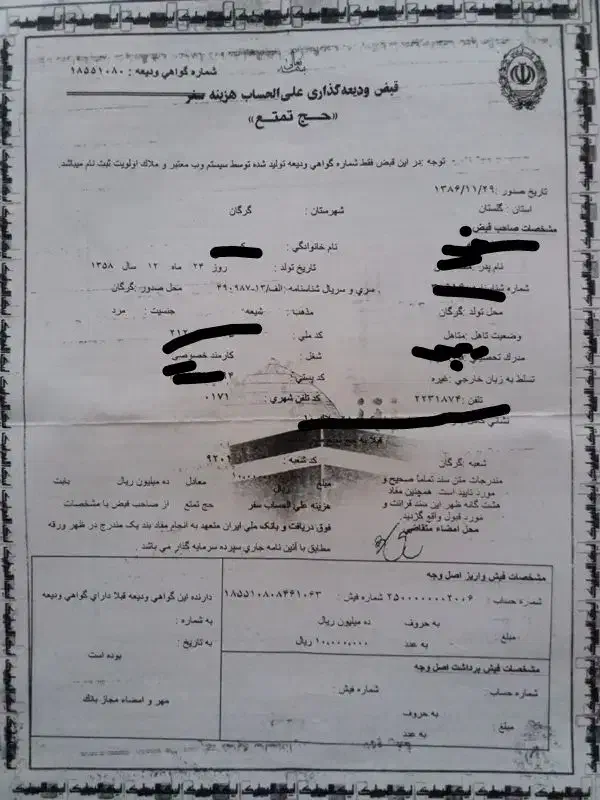 شماره گواهي وديعه : ۱۸۵۵۱۰۸۰
قبض وديعه‌گذاري علی‌الحساب هزينه سفر
«حـج تمتـع»
توجه :در اين قبض فقط شماره گواهي وديعه توليد شده توسط سيستم وب معتبر و ملاك اولويت ثبت نام ميباشد.
تاريخ صدور :۱۳۸۶/۱۱/۲۹
استان : گلستان شهرستان : گرگان
مشخصات صاحب قبض :
نام خانوادگي :
نام پدر تاريخ تولد : روز ۲۴ ماه ۱۲ سال ۱۳۵۸
شماره سري و سريال شناسنامه :الف/۱۳-۴۹۰۹۸۷ محل صدور :گرگان
محل تولد :گرگان مذهب : شيعه جنسيت : مرد
وضعيت تاهل :متاهل كد ملي : ۲۱۲
مدرك شغل : كارمند خصوصي
تسلط به زبان خارجي :غيره كد پستي :
تلفن :۲۲۳۱۸۷۴ كد تلفن شهري : ۰۱۷۱
نشاني
شعبه :گرگان كد شعبه : ۹۲۰۱
مندرجات متن سند تماماً صحيح و
مورد تاييد است همچنين مفاد
هشت گانه ظهر اين سند قرائت و
مورد قبول واقع گرديد
محل امضاء متقاضي
مبلغ ۱۰,۰۰۰,۰۰۰ ريال معادل ده ميليون ريال بابت
هزينه علي الحساب سفر حج تمتع از صاحب قبض با مشخصات
فوق دريافت و بانك ملي ايران متعهد به انجام مفاد بند يك مندرج در ظهر ورقه
مطابق با آئين نامه جاري سپرده سرمايه گذار مي باشد .
مشخصات فيش واريز اصل وجه
شماره حساب : ۲۵۰۰۰۰۰۰۰۲۰۰۶ شماره فيش : ۱۸۵۵۱۰۸۰۸۴۶۱۰۶۳
مبلغ : به حروف ده ميليون ريال
به عدد ۱۰,۰۰۰,۰۰۰ ريال
مشخصات فيش برداشت اصل وجه
شماره حساب : شماره فيش :
مبلغ : به حروف
به عدد
دارنده اين گواهي وديعه قبلا داراي گواهي وديعه
به شماره :
به تاريخ :
بوده است
مهر و امضاء مجاز بانك